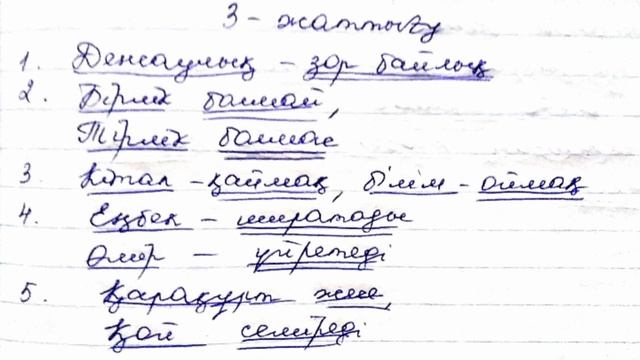 3 - жаттығу
1. Денсаулық - зор байлық
2. Бірлік болмай,
Тірлік болмас
3 Кітап - қаймақ, білім - оймақ
4. Еңбек - шыратады
Өмір - үйретеді
5. Қарақұрт жесе,
Қой семіреді